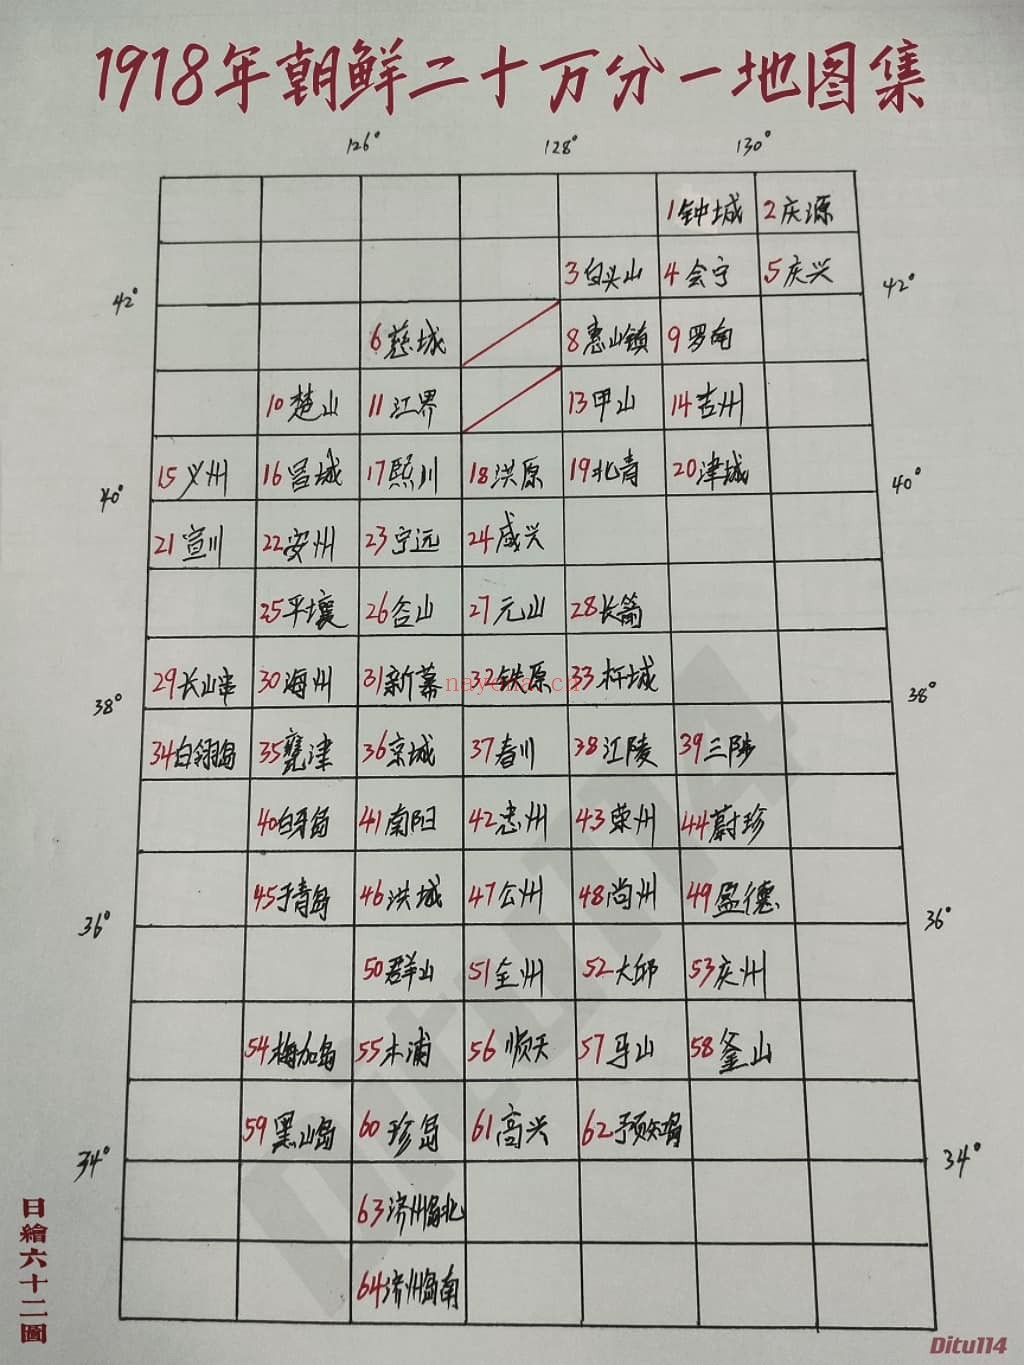 1918年朝鲜二十万分一地图集
126° 128° 130°
1钟城 2庆源
3白头山 4会宁 5庆兴
42° 42°
6慈城 8惠山镇 9罗南
10楚山 11江界 13甲山 14吉州
15义州 16昌城 17熙川 18洪原 19北青 20津城
40° 40°
21宣川 22安州 23宁远 24咸兴
25平壤 26谷山 27元山 28长箭
29长山串 30海州 31新幕 32铁原 33杆城
nayona.cn
38° 38°
34白翎岛 35瓮津 36京城 37春川 38江陵 39三陟
40白牙岛 41南阳 42忠州 43荣州 44蔚珍
45于青岛 46洪城 47公州 48尚州 49盈德
36° 36°
50群山 51全州 52大邱 53庆州
54梅加岛 55木浦 56顺天 57马山 58釜山
59黑山岛 60珍岛 61高兴 62予知岛
34° 34°
63济州岛北
64济州岛南
日繪六十二圖
Ditu114
Ditu114